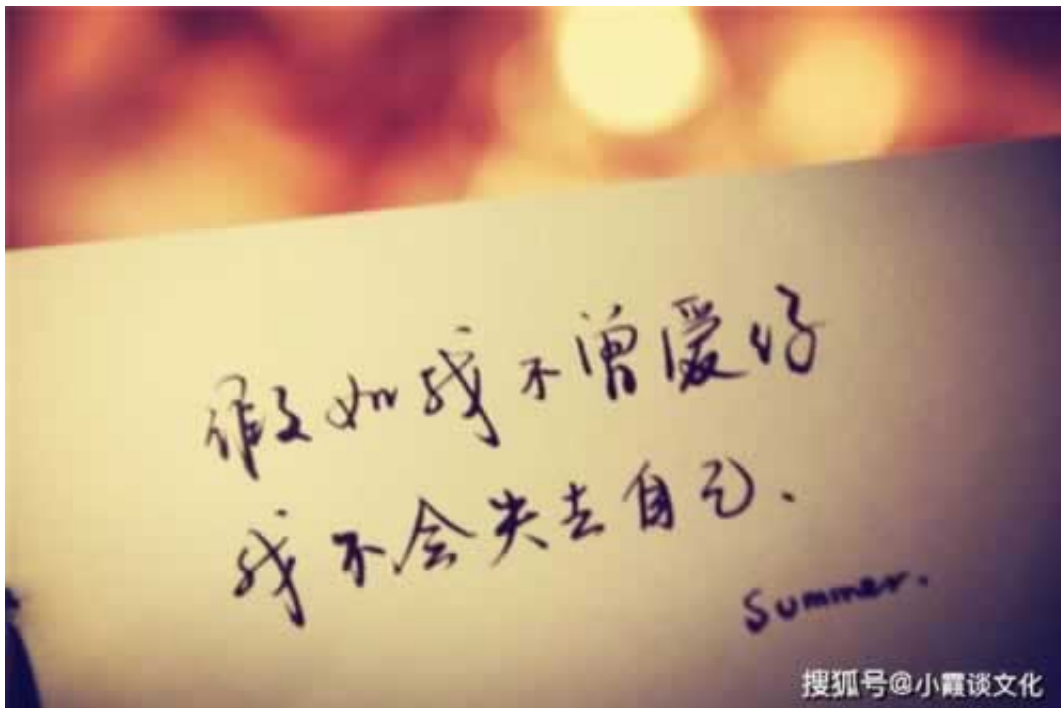 假如我不曾爱你
我不会失去自己.
Summer.
搜狐号@小霞谈文化